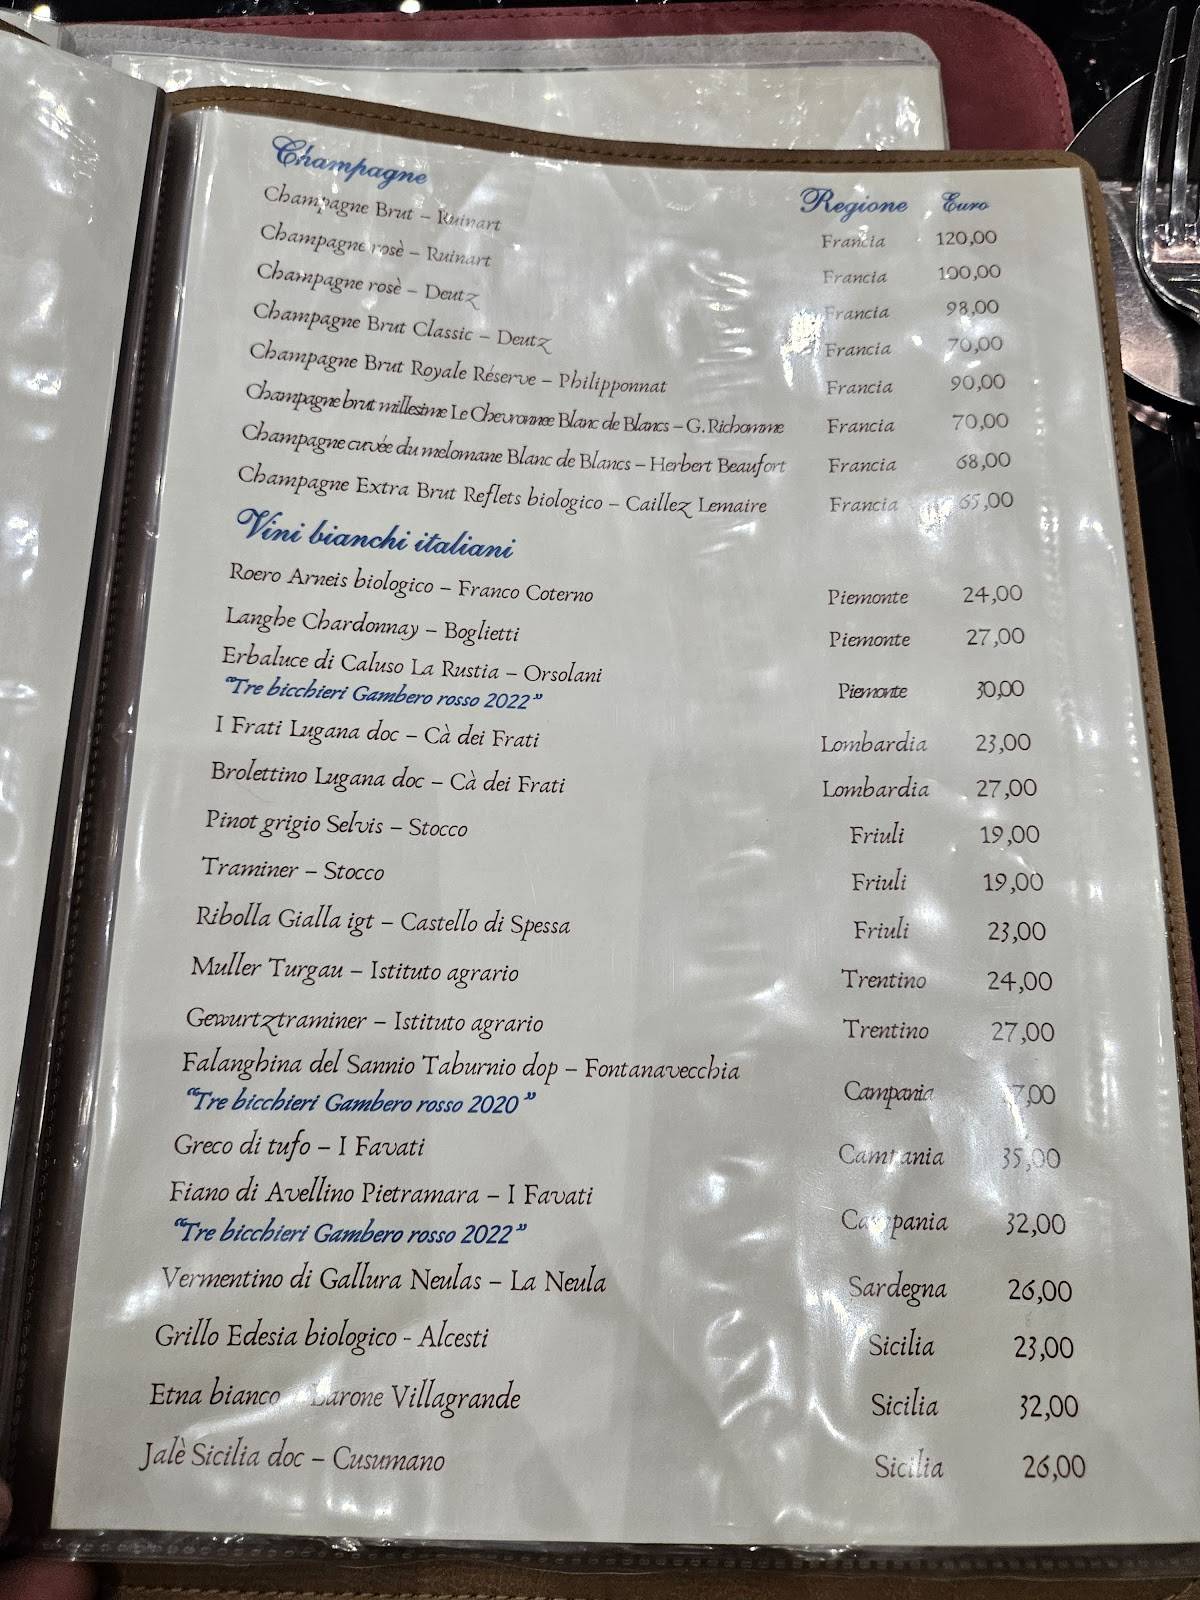 Champagne Regione Euro
Champagne Brut – Ruinart Francia 120,00
Champagne rosè – Ruinart Francia 100,00
Champagne rosè – Deutz Francia 98,00
Champagne Brut Classic – Deutz Francia 70,00
Champagne Brut Royale Réserve – Philipponnat Francia 90,00
Champagne brut millesime Le Chevronnee Blanc de Blancs – G. Richomme Francia 70,00
Champagne cuvée du melomane Blanc de Blancs – Herbert Beaufort Francia 68,00
Champagne Extra Brut Reflets biologico – Caillez Lemaire Francia 65,00
Vini bianchi italiani
Roero Arneis biologico – Franco Coterno Piemonte 24,00
Langhe Chardonnay – Boglietti Piemonte 27,00
Erbaluce di Caluso La Rustia – Orsolani Piemonte 30,00
“Tre bicchieri Gambero rosso 2022”
I Frati Lugana doc – Cà dei Frati Lombardia 23,00
Brolettino Lugana doc – Cà dei Frati Lombardia 27,00
Pinot grigio Selvis – Stocco Friuli 19,00
Traminer – Stocco Friuli 19,00
Ribolla Gialla igt – Castello di Spessa Friuli 23,00
Muller Turgau – Istituto agrario Trentino 24,00
Gewurtztraminer – Istituto agrario Trentino 27,00
Falanghina del Sannio Taburnio dop – Fontanavecchia Campania
“Tre bicchieri Gambero rosso 2020”
Greco di tufo – I Favati Campania 35,00
Fiano di Avellino Pietramara – I Favati Campania 32,00
“Tre bicchieri Gambero rosso 2022”
Vermentino di Gallura Neulas – La Neula Sardegna 26,00
Grillo Edesia biologico - Alcesti Sicilia 23,00
Etna bianco Barone Villagrande Sicilia 32,00
Jalè Sicilia doc – Cusumano Sicilia 26,00